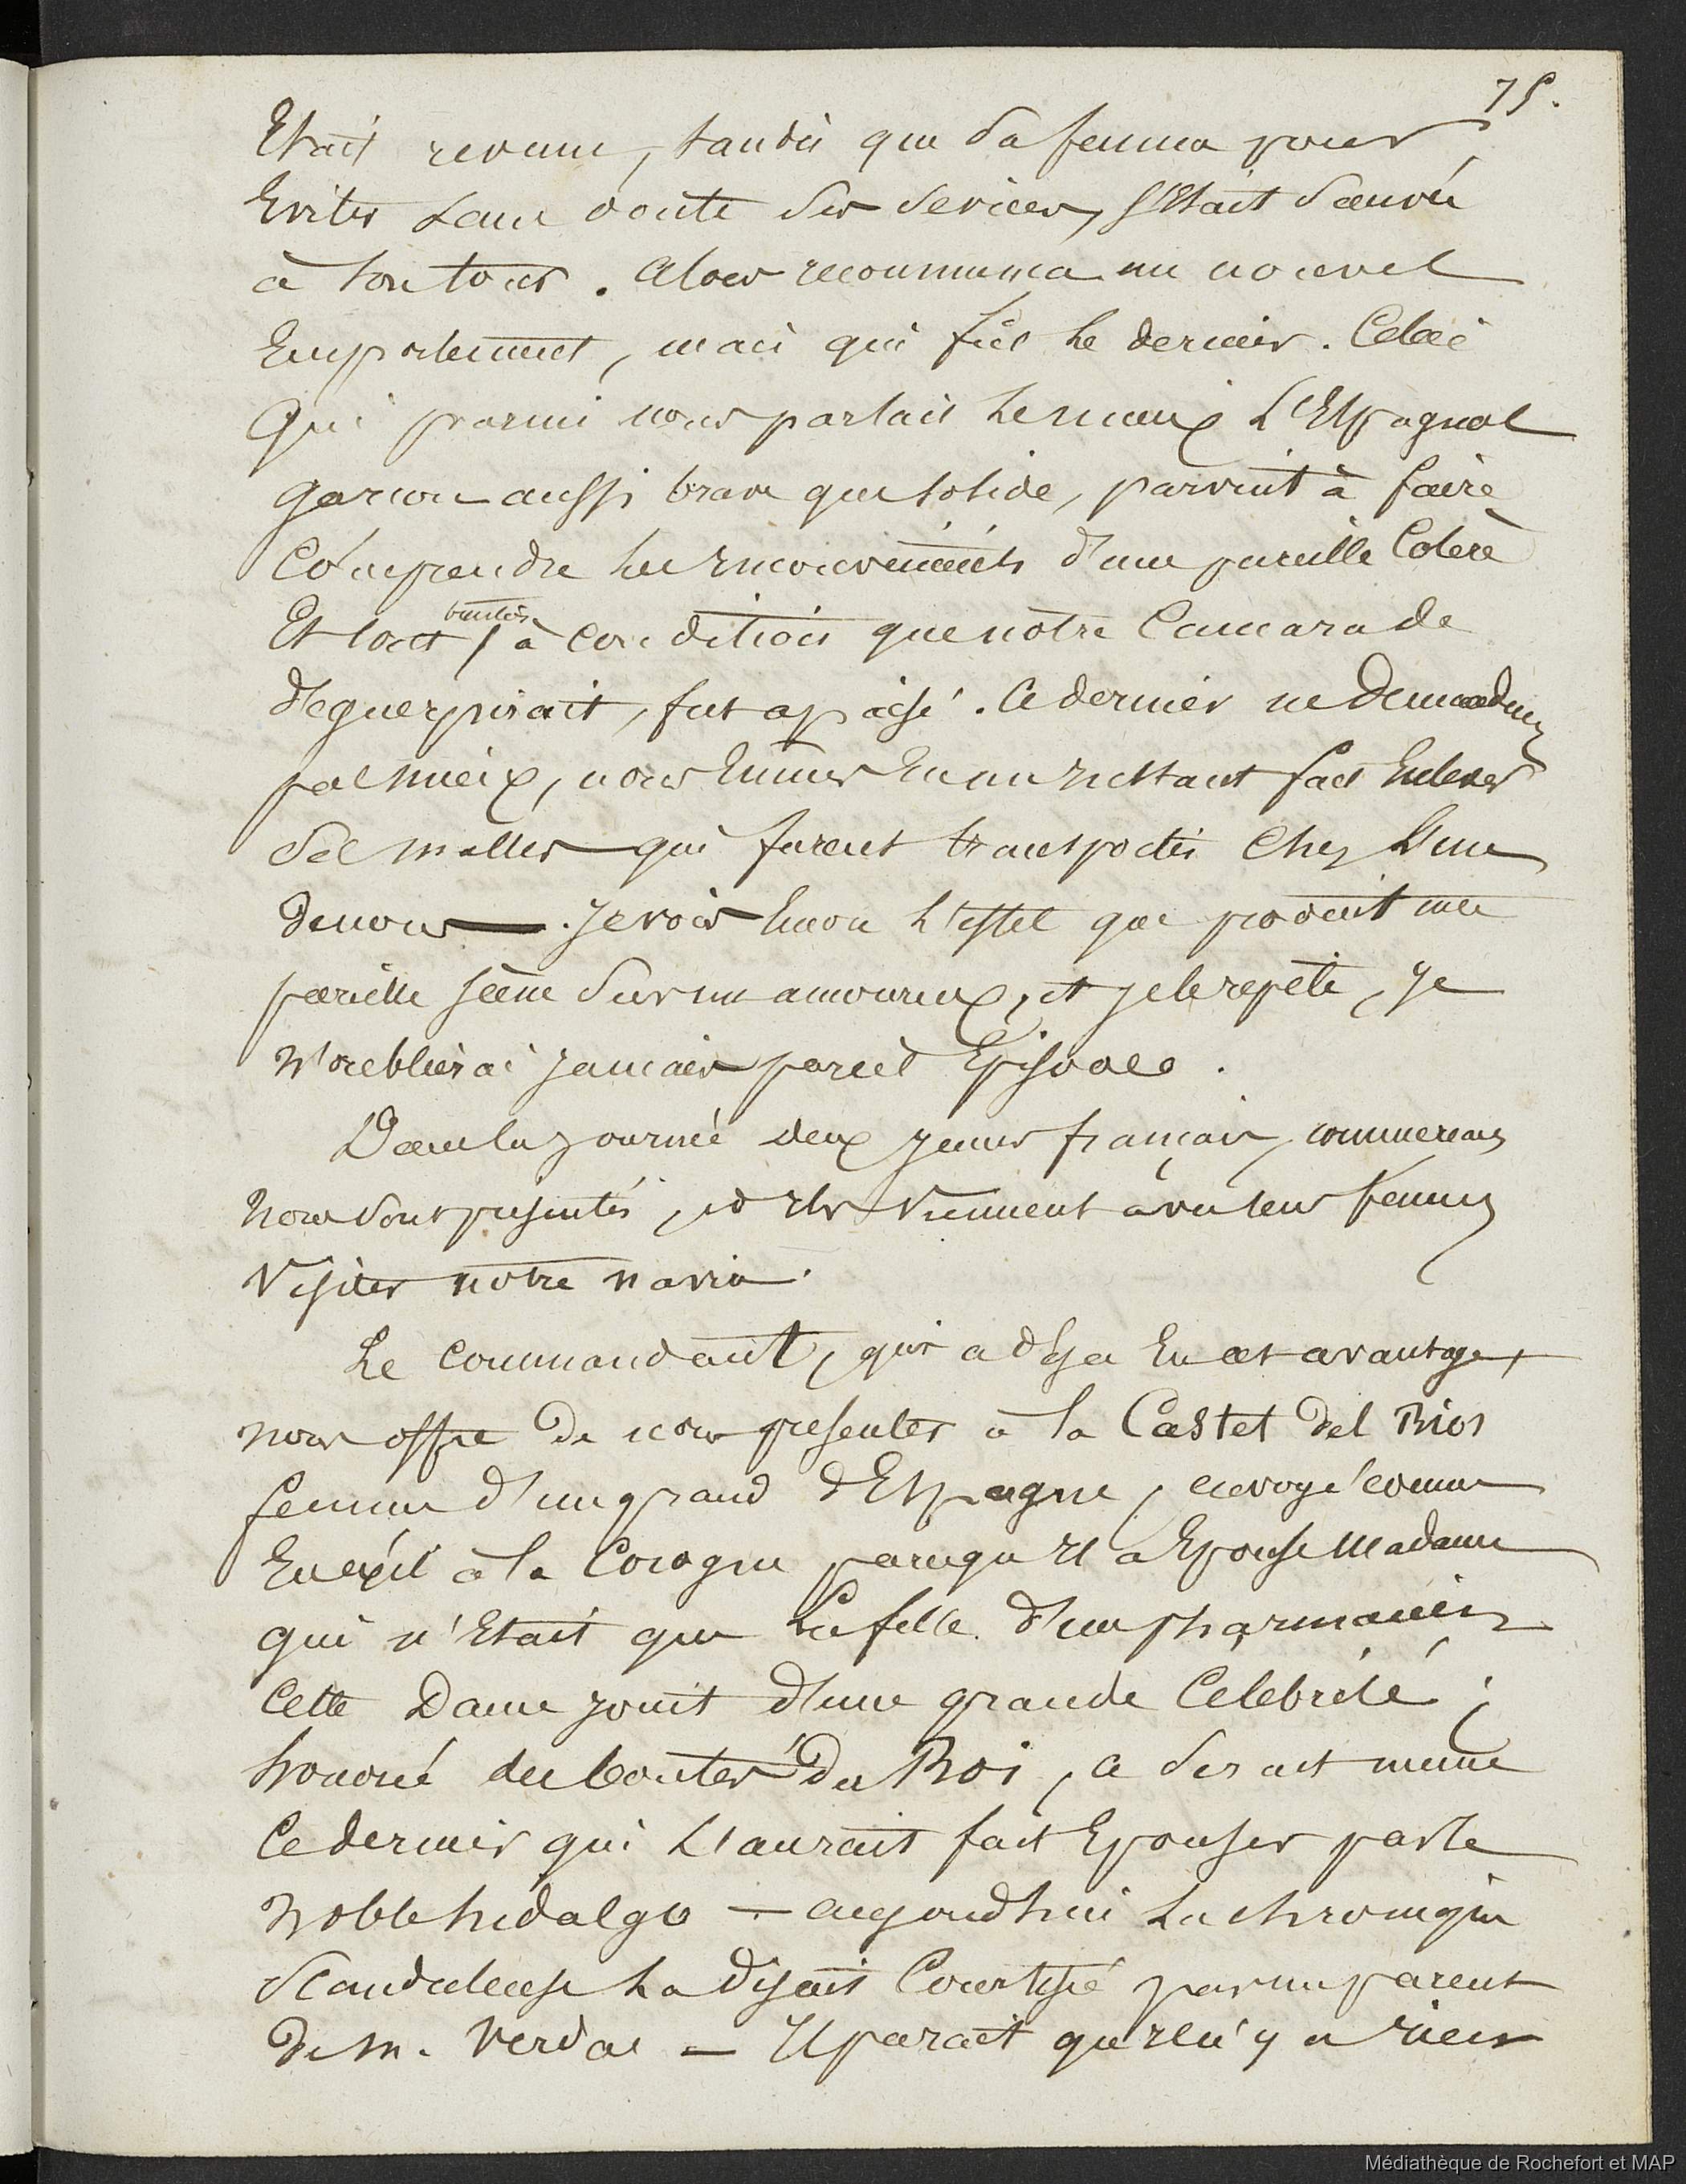 75.
Etait revenu, tandis que sa femme pour
Eviter sans doute des sevices, s'Etait sauvée
à son tour. Alors recommença un nouvel
Emportement, mais qui fût le dernier. Celui
qui parmi nous parlait le mieux l'Espagnol
garçon aussi brave que solide, parvint à faire
Comprendre les inconvénients d'une pareille Colère
Et tout à condition que notre Camarade
deguerpirait, fut apaisé. Ce dernier ne demandant
pas mieux, nous Eumes En un instant fait Enlever
ses malles qui furent transportés Chez L'un
de nous — Je vois Encore l'effet que produit une
pareille scène sur un amoureux, et je le repète, je
n'oublierai jamais pareil Episode.
Dans la journée deux jeunes français, commerçants
nous sont presentés, et ils viennent avec leurs femmes
visiter notre navire.
Le Commandant, qui a deja Eu cet avantage,
nous offre de nous presenter à la Castet del Rios
femme d'un grand d'Espagne, envoyé comme
En exil à la Corogne parcequ'il a Epousé Madame
qui n'Etait que La fille d'un pharmacien
Cette Dame jouit d'une grande Célébrité;
honoré des bontés du Roi, ce serait meme
Ce dernier qui L'aurait fait Epouser par le
noble hidalgo — aujourd'hui La chronique
Scandaleuse La disait Courtisé par un parent
de M. Verdac — Il parait qu'il n'y a rien
Médiathèque de Rochefort et MAP